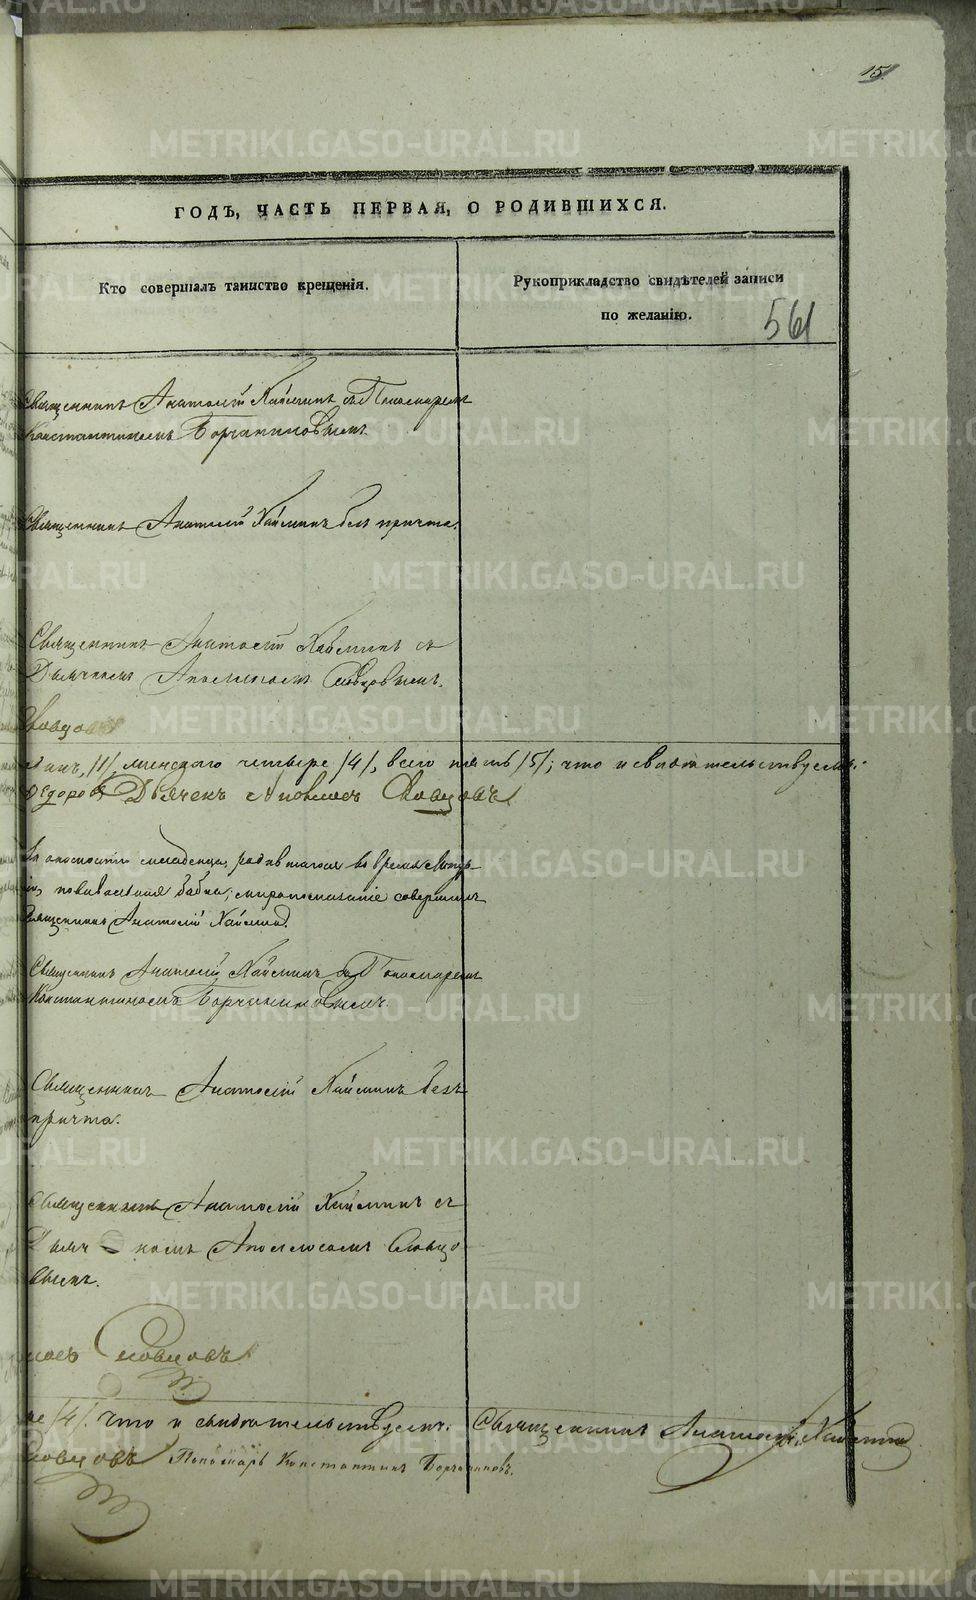 15
ГОДЪ, ЧАСТЬ ПЕРВАЯ, О РОДИВШИХСЯ.
Кто совершалъ таинство крещенія.
Рукоприкладство свидѣтелей записи
по желанію.
561
Священникъ Анатолій Хаймин съ Пономаремъ
Константиномъ Борчаниновымъ
Священникъ Анатолій Хайминъ безъ причта.
Священникъ Анатолій Хайминъ съ
Дьячкомъ Аполлосомъ Словцовымъ.
Словцовъ
одинъ, /1/ женскаго четыре /4/, всего пять /5/; что и свидѣтельствуемъ:
Дьячекъ Аполлосъ Словцовъ
младенца, во время
повивальная бабка; миропомазаніе совершилъ
Священникъ Анатолій Хайминъ.
Священникъ Анатолій Хайминъ съ Пономаремъ
Константиномъ Борчаниновымъ.
Священникъ Анатолій Хайминъ безъ
причта.
Священникъ Анатолій Хайминъ съ
Дьяч комъ Аполлосомъ Словцо
вымъ.
Словцовъ
/4/. что и свидѣтельствуемъ: Священникъ Анатолій Хайминъ
Словцовъ Пономарь Константинъ Борчаниновъ.
METRIKI.GASO-URAL.RU